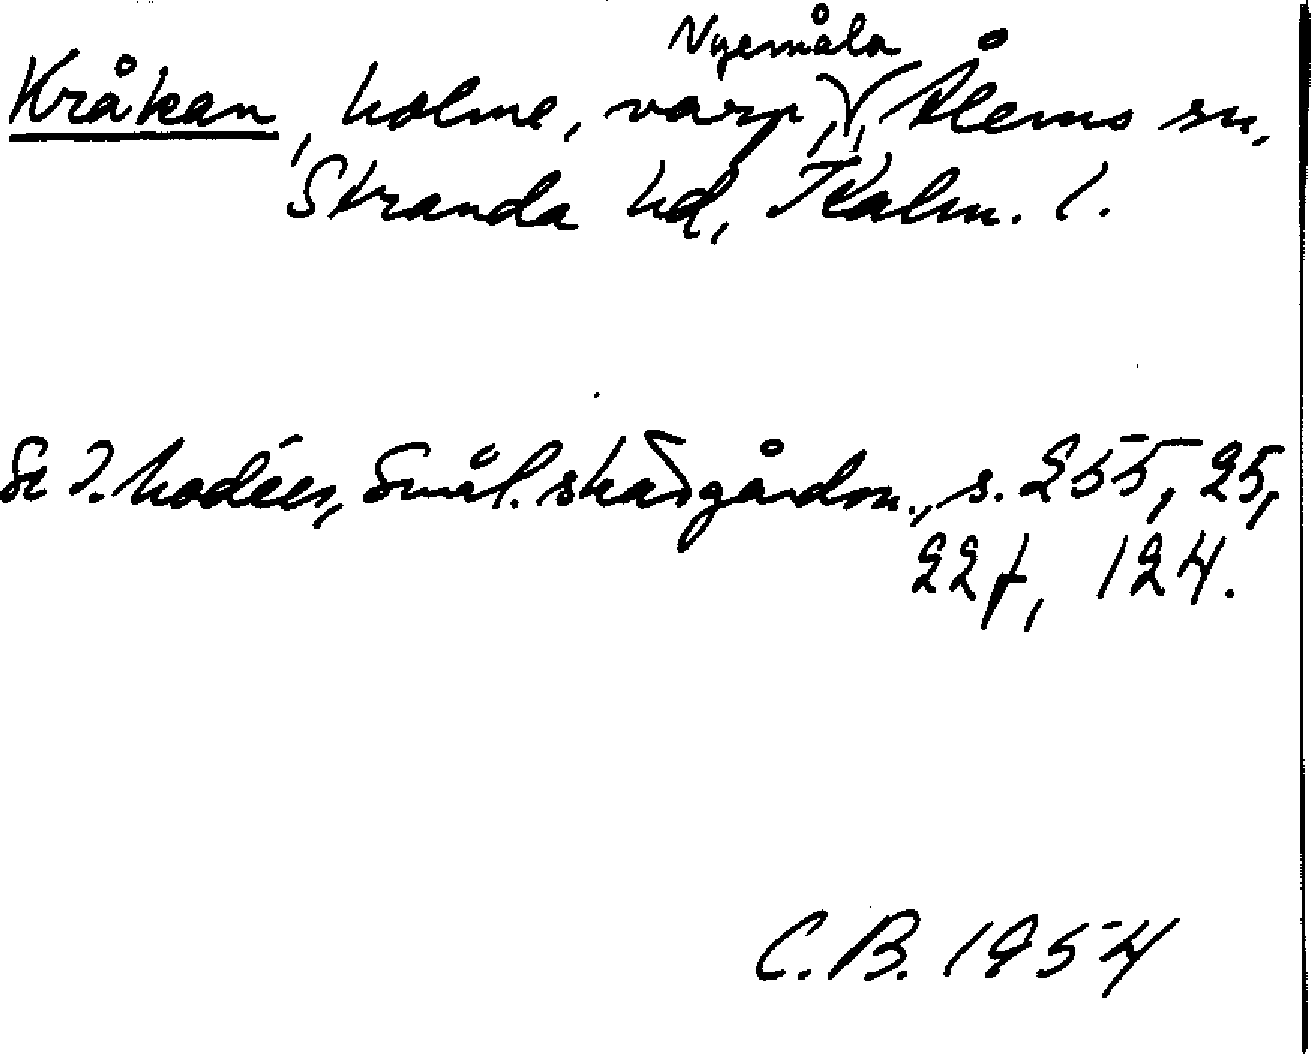 Nyemåla
Kråkan, holme, varp, Ålems sn,
Stranda hd, Kalm. l.
Se I. Modéer, Smål. skärgårdsn., s. 255, 25,
227, 124.
C.B. 1954